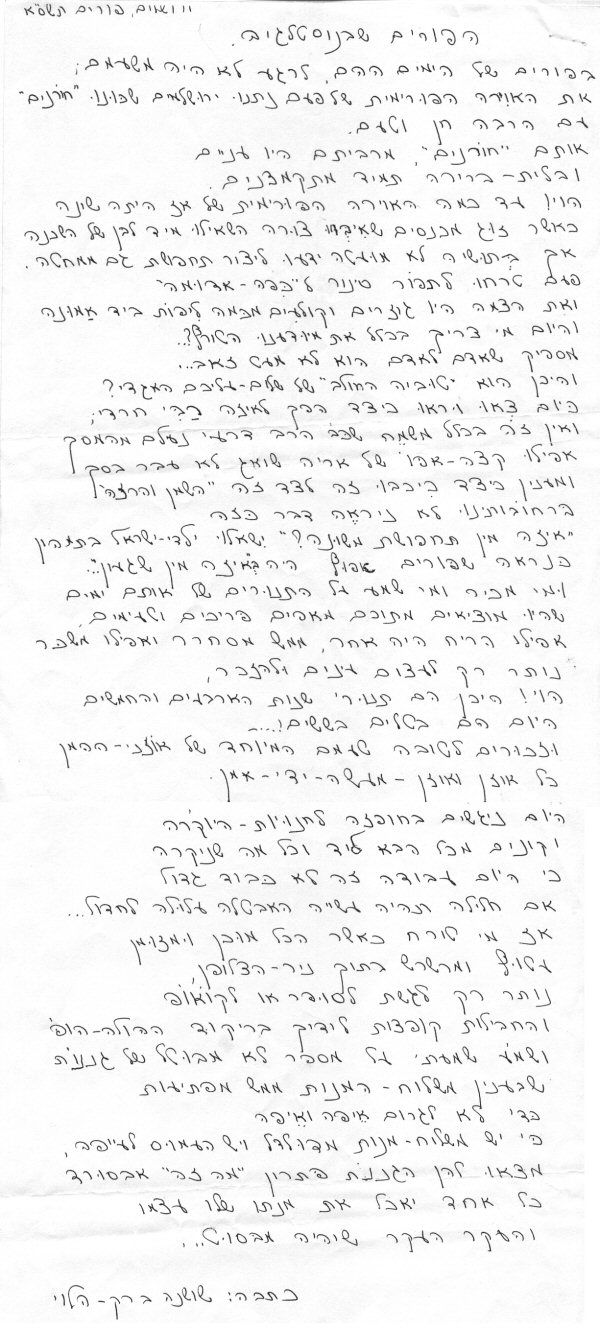 ירושלים, פורים תשס"א
הפורים שבנוסטלגיה.
בפורים של הימים ההם, לרגע לא היה משעמם;
את האוירה הפורימית של פעם נתנו ירושלמים שכונו "חורנים"
עם הרבה חן וטעם.
אותם "חורנים", מרביתם היו עניים
ובלית-ברירה תמיד מתקמצנים.
הוין עד כמה האוירה הפורימית של אז היתה שונה
כאשר זוג מכנסים שאיבדו צורה השאילו מיד לבן של השכנה
אך בתושיה לא מועטה ידעו ליצור תחפושת גם ממחטה.
פעם טרחו לתפור סינור ל"כפה-אדומה"
ואת הצמה היו גוזרים וקולעים מכמה ליפות ביד אמונה
והיום מי צריך בכלל את מיודענו השורץ?..
מספיק שאדם לאדם הוא לא מעט זאב...
והיכן הוא "טוביה החולב" של שלום-עליכם המגדי?
כיום צאו וראו כיצד הפך לאיזה רבי חרדי;
ואין זה בכלל משמח שכבר הרב דרעי נעלם מהמסך
אפילו קצה-אפו של אריה שואג לא עבר בסך
ומענין כיצד כיכבו זה לצד זה "השמן והרזה"
ברחובותינו לא ניראה דבר כזה
"איזה מין תחפושת משונה?" ישאלו ילדי-ישראל בתמהון
כנראה שפורים אפוף היה באיזה מין שגעון...
ומי מכיר ומי שמע על התנורים של אותם ימים
שהיו מוציאים מתוכם מאפים פריכים וטעימים,
אפילו הריח היה אחר, ממש מסחרר ואפילו משכר
נותר רק לעצום עינים ולהזכר,
הוי! היכן הם תנורי שנות הארבעים והחמשים
היום הם בטלים בששים!....
וזכורים לטובה טעמם המיוחד של אוזני-ההמן
כל אוזן ואוזן - מעשה-ידי-אמן.
היום ניגשים בחופזה לחנויות-היוקרה
וקונים מכל הבא ליד וכל מה שניקרה
כי היום עבודה זה לא כבוד גדול
אם חלילה תהיה עשייה האבטלה עלולה לחדול...
אז מי טורח כאשר הכל מוכן ומזומן
עטוף ומרשרש בתוך ניר-הצלופן,
נותר רק לגשת לסופר או לקואופ
והחבילות קופצות לידיך בריקוד ההולה-הופ
ושמע שמעתי על מספר לא מבוטל של גננות
שבענין משלוח-המנות ממש מפתיעות
כדי לא לגרום איפה ואיפה
כי יש משלוח-מנות מדולדל ויש העמוס לעייפה,
מצאו להן הגננות פתרון "מה זה" אבסורד
כל אחד יאכל את מנתו שלו עצמו
והעקר העקר שיהיה מבסוט...
כתבה: שושנה ברק-הלוי